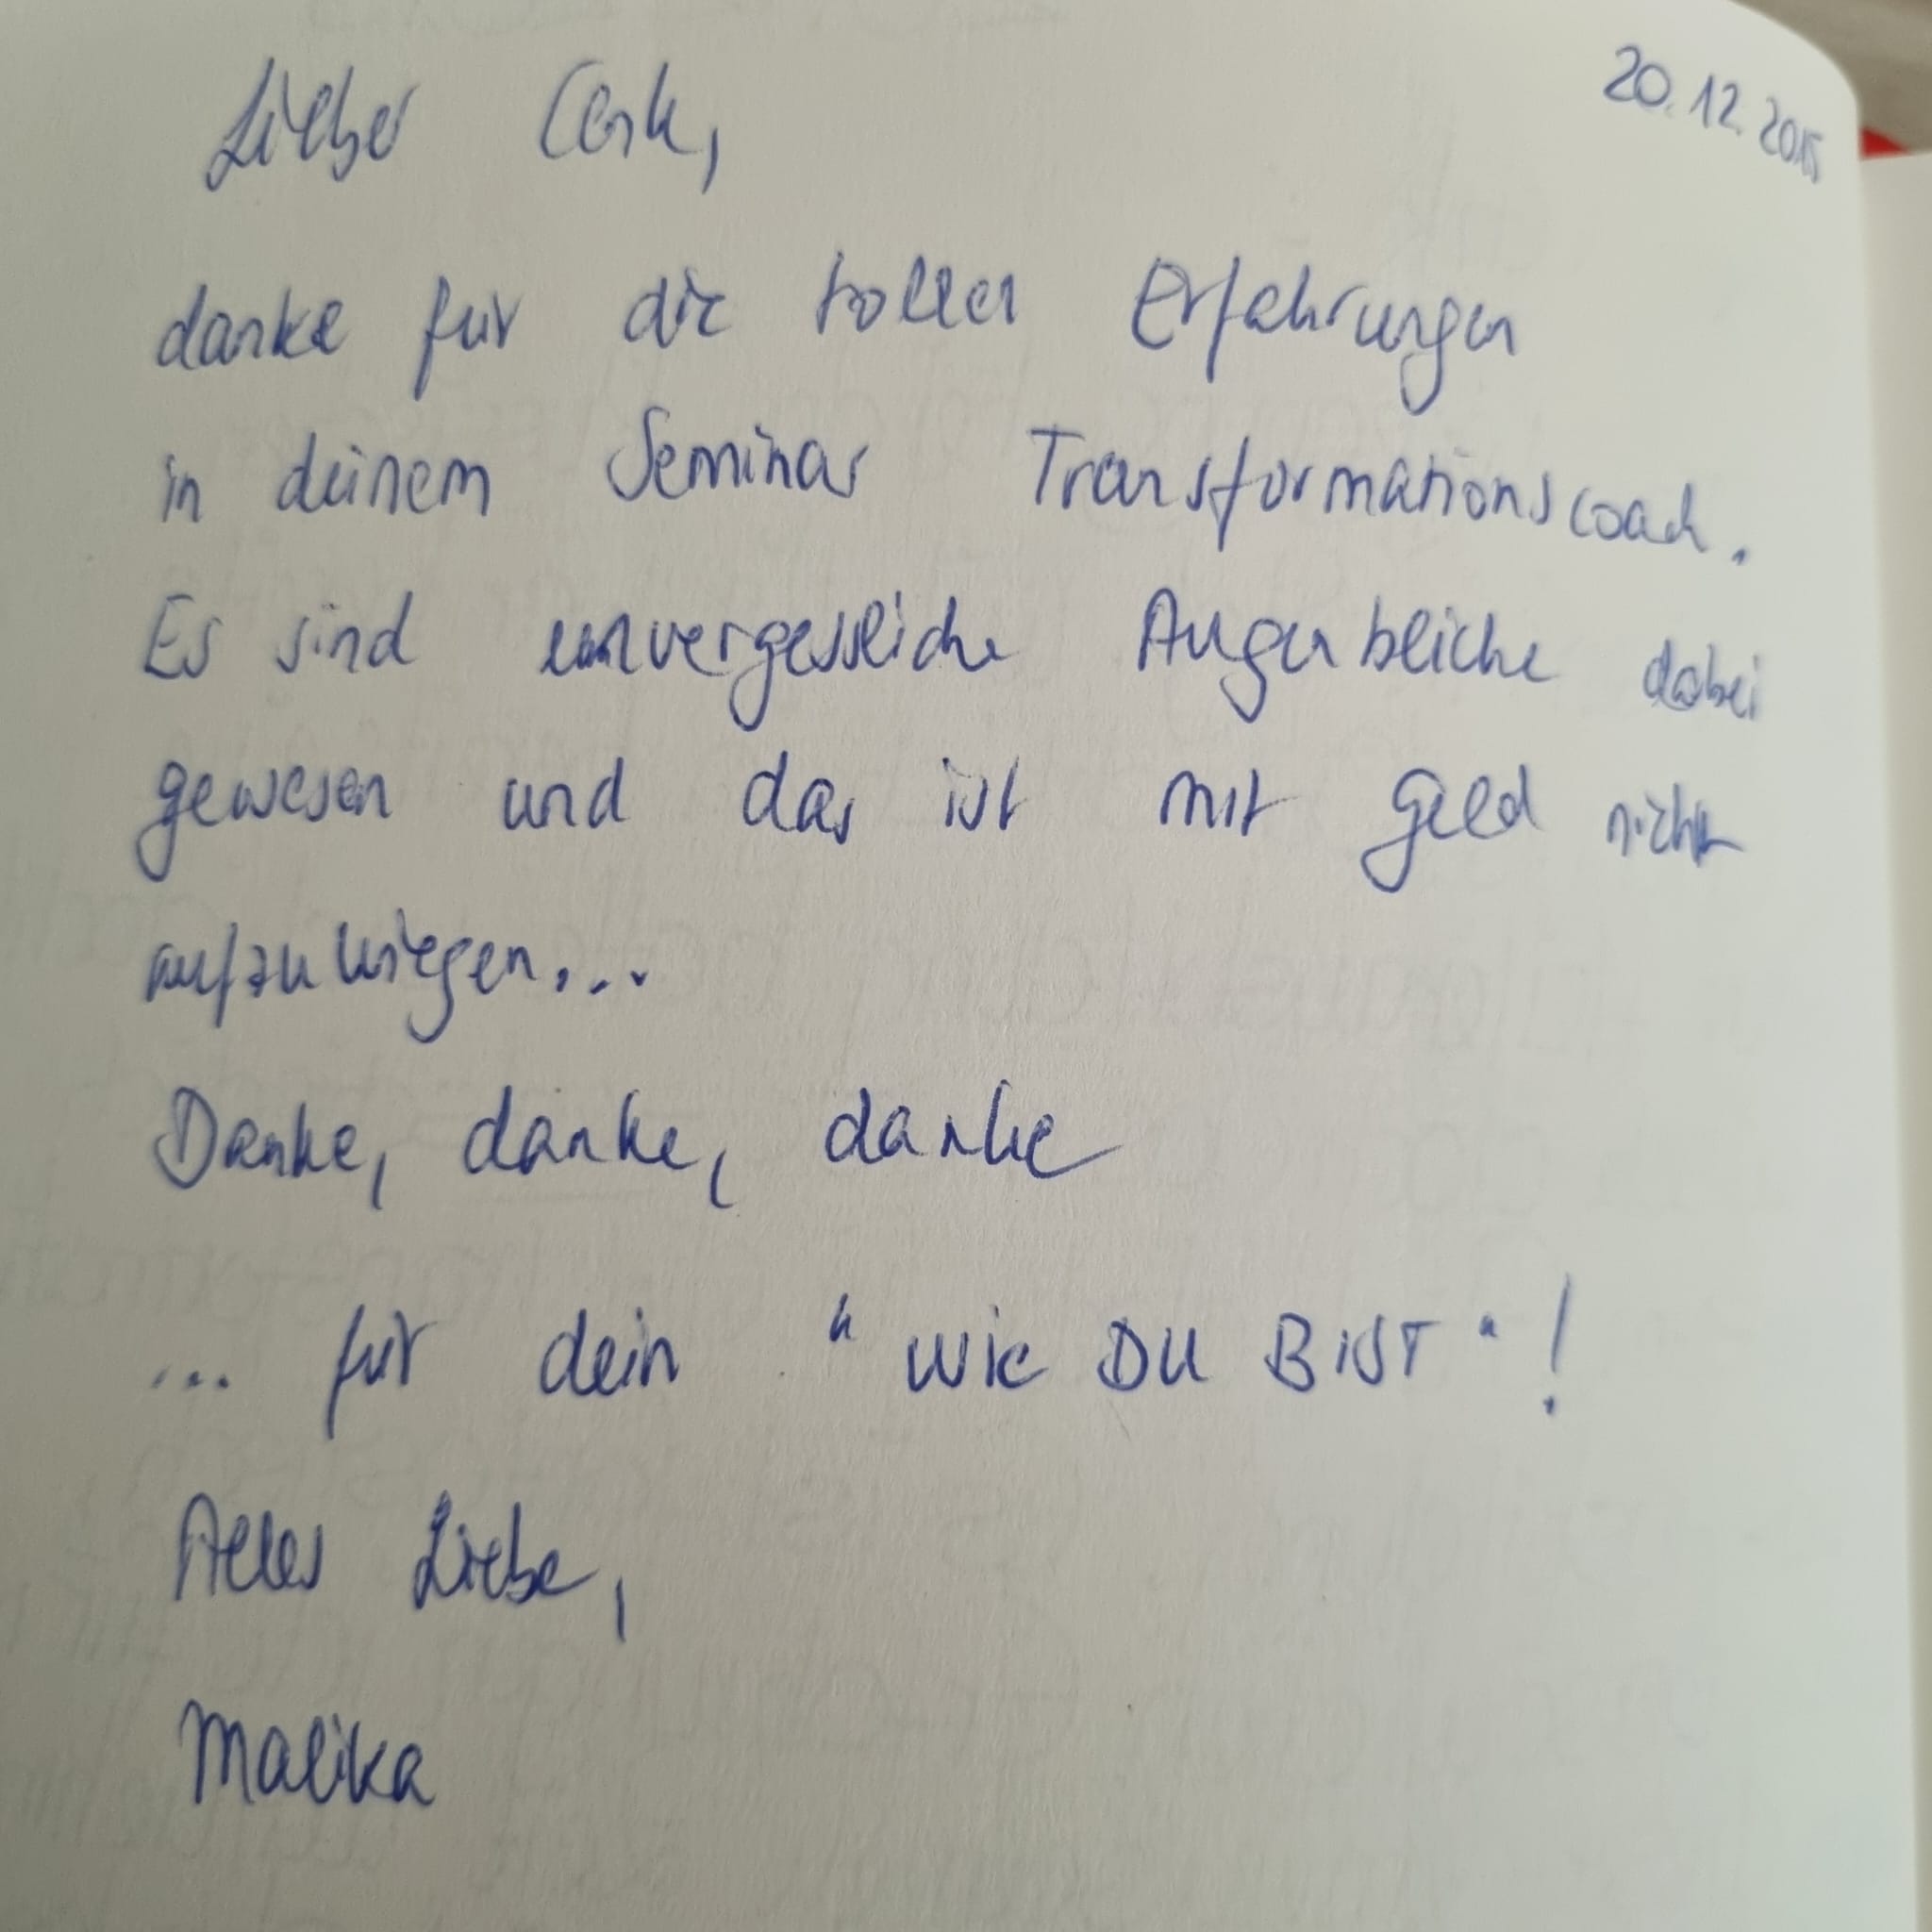 20.12.2015
Lieber Cenk,
danke für die tollen Erfahrungen
in deinem Seminar Transformationscoach.
Es sind unvergessliche Augenblicke dabei
gewesen und das ist mit Geld nicht
aufzuwiegen...
Danke, danke, danke
... für dein "WiE DU BiST"!
Alles Liebe,
Malika